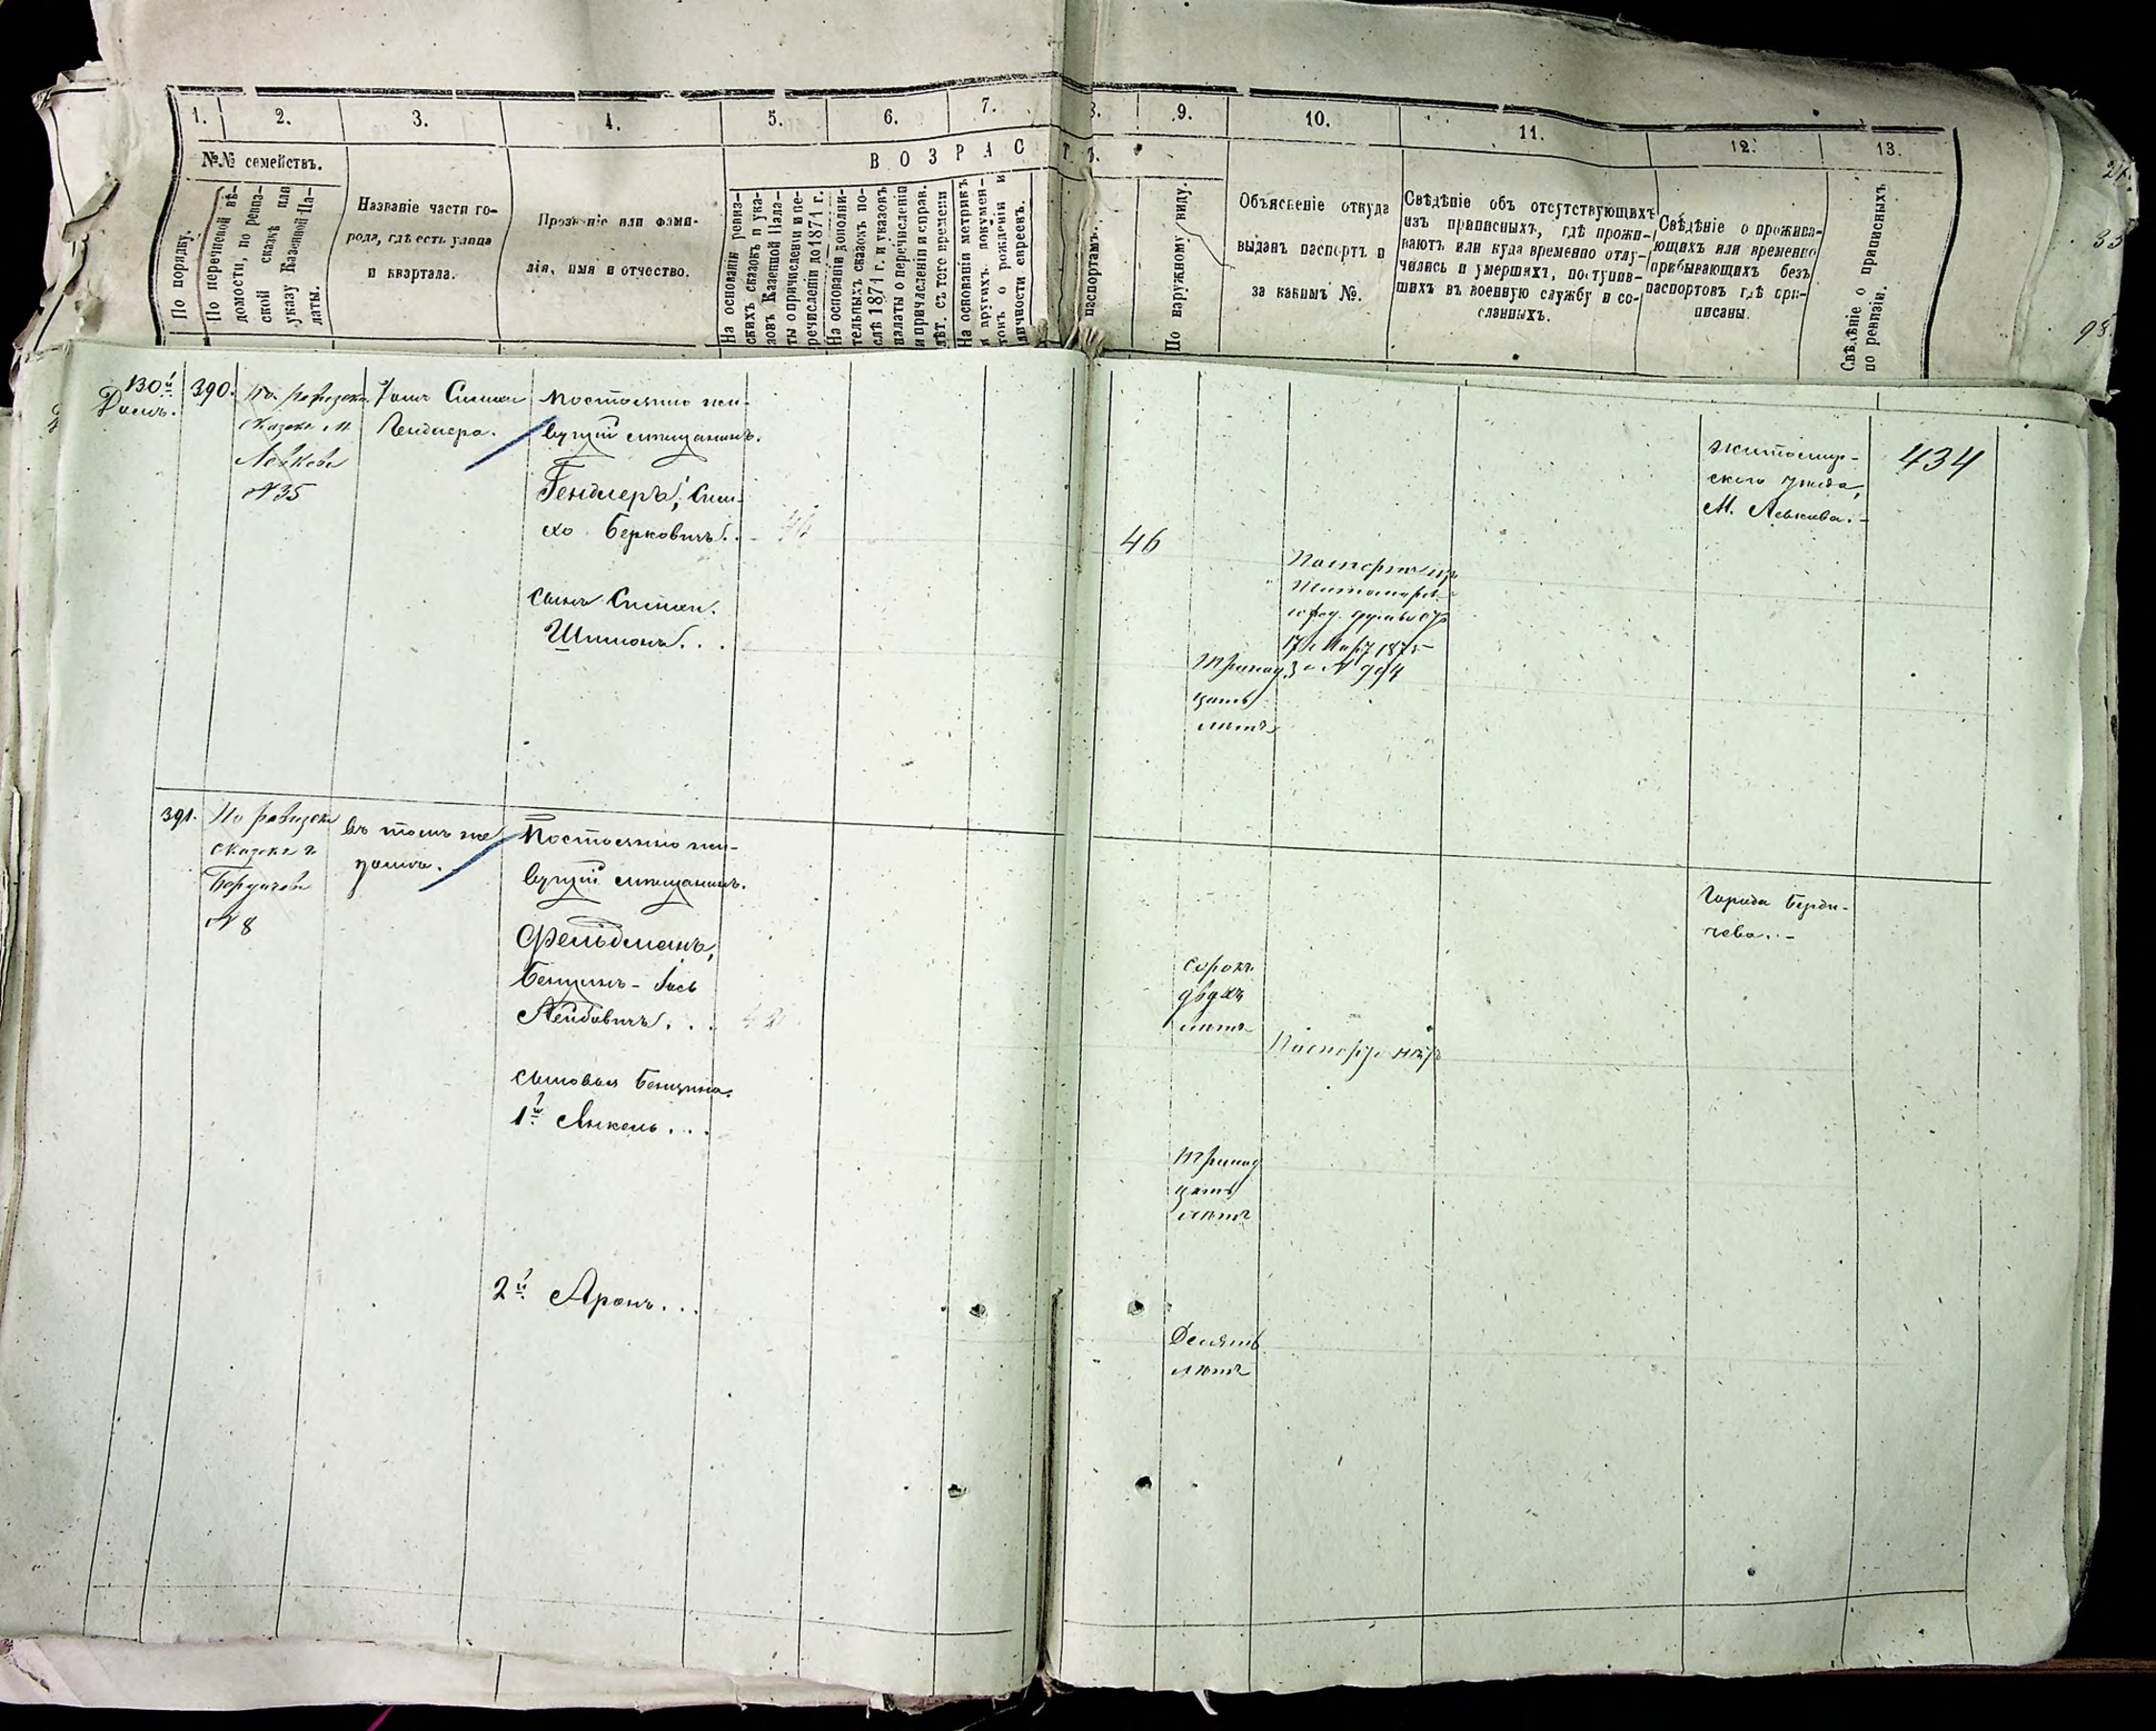 1.
2.
3.
4.
5.
6.
7.
8.
9.
10.
11.
12.
13.
№№ семействъ.
ВОЗРАСТЪ.
По порядку.
По перечневой вѣ-
домости, по ревиз-
ской сказкѣ или
указу Казенной Па-
латы.
Названіе части го-
рода, гдѣ есть улица
и квартала.
Прозваніе или фами-
лія, имя и отчество.
На основаніи ревиз-
скихъ сказокъ и ука-
зовъ Казенной Пала-
ты о причисленіи и пе-
речисленіи до 1871 г.
На основаніи дополни-
тельныхъ сказокъ по-
слѣ 1871 г. и указовъ
палаты о перечисленіи
и причисленіи и справ.
лѣт. съ того времени
На основаніи метрикъ
и другихъ докумен-
товъ о рожденіи и
личности евреевъ.
паспортамъ.
По наружному виду.
Объясненіе откуда
выданъ паспортъ и
за какимъ №.
Свѣдѣніе объ отсутствующихъ
изъ приписныхъ, гдѣ прожи-
ваютъ или куда временно отлу-
чились и умершихъ, поступив-
шихъ въ военную службу и со-
сланныхъ.
Свѣдѣніе о прожива-
ющихъ или временно
прибывающихъ безъ
паспортовъ гдѣ при-
писаны.
Свѣдѣніе о приписныхъ
по ревизіи.
130й
Домъ.
390.
По ревизск.
сказкѣ М.
Левкова
№ 35
Домъ Симхи
Гендлера.
Постоянно жи-
вущій мѣщанинъ.
Гендлеръ, Сим-
хо Берковичъ..
сынъ Симхи.
Шимонъ...
46
Паспортъ изъ
Житомирск.
1875
за № 994
Тринад
цать
лѣтъ
Житомир-
скаго уѣзда,
М. Левкова.-
434
391.
По ревизск
сказкѣ г.
Бердичева
№ 8
въ томъ же
домѣ.
Постоянно жи-
вущій мѣщанинъ.
Фельдманъ,
Бенціонъ-Іось
Лейбовичъ...
42
сорокъ
двухъ
лѣтъ
сыновья Бенціона.
1й Янкель...
Тринад
цать
лѣтъ
2й Аронъ...
Десять
лѣтъ
Города Берди-
чева..-